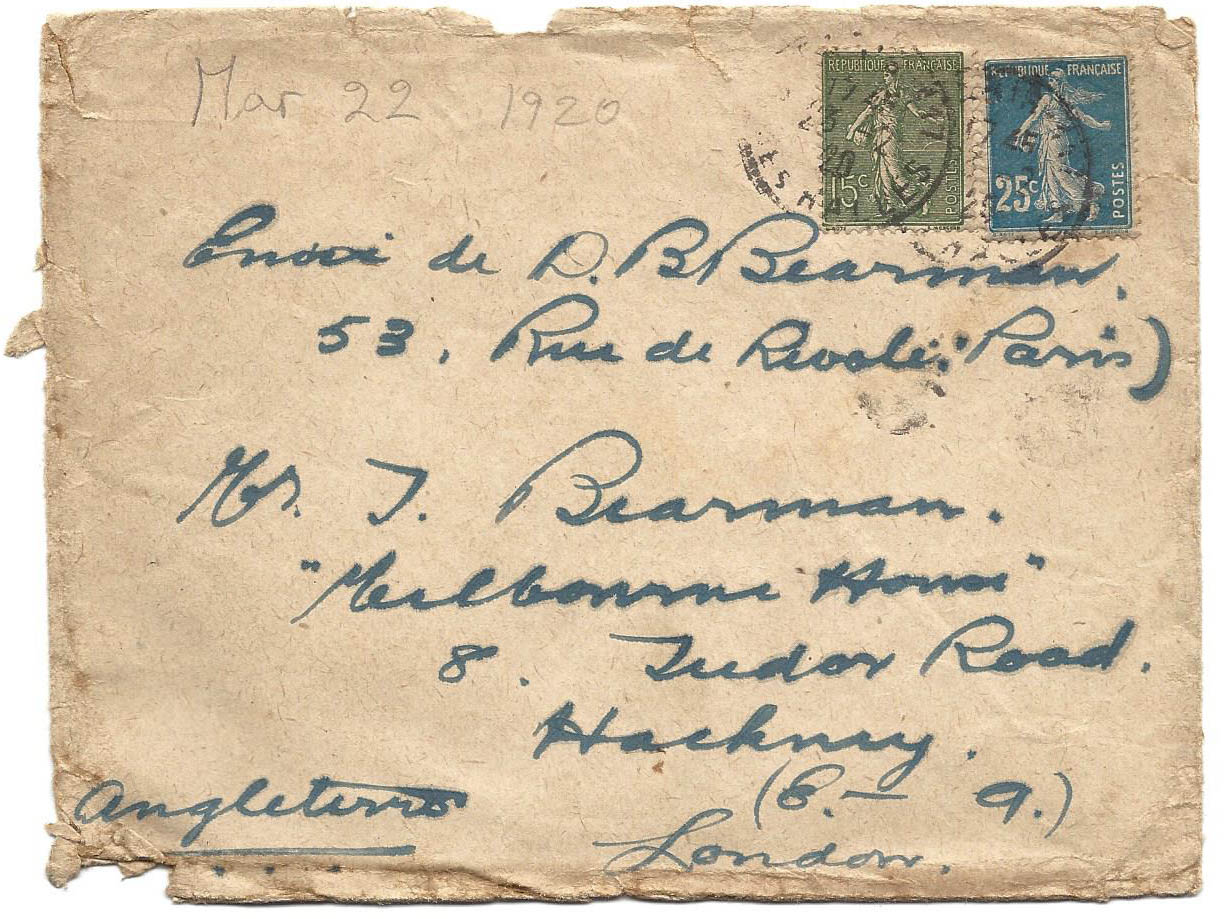 Mar 22 1920
REPUBLIQUE FRANÇAISE
15c
REPUBLIQUE FRANÇAISE
25c
POSTES
Envoi de D. B Bearman.
53, Rue de Rivoli, Paris)
Mr. T. Bearman.
"Melbourne House"
8. Tudor Road.
Hackney.
(E. — 9.)
Angleterre
London.